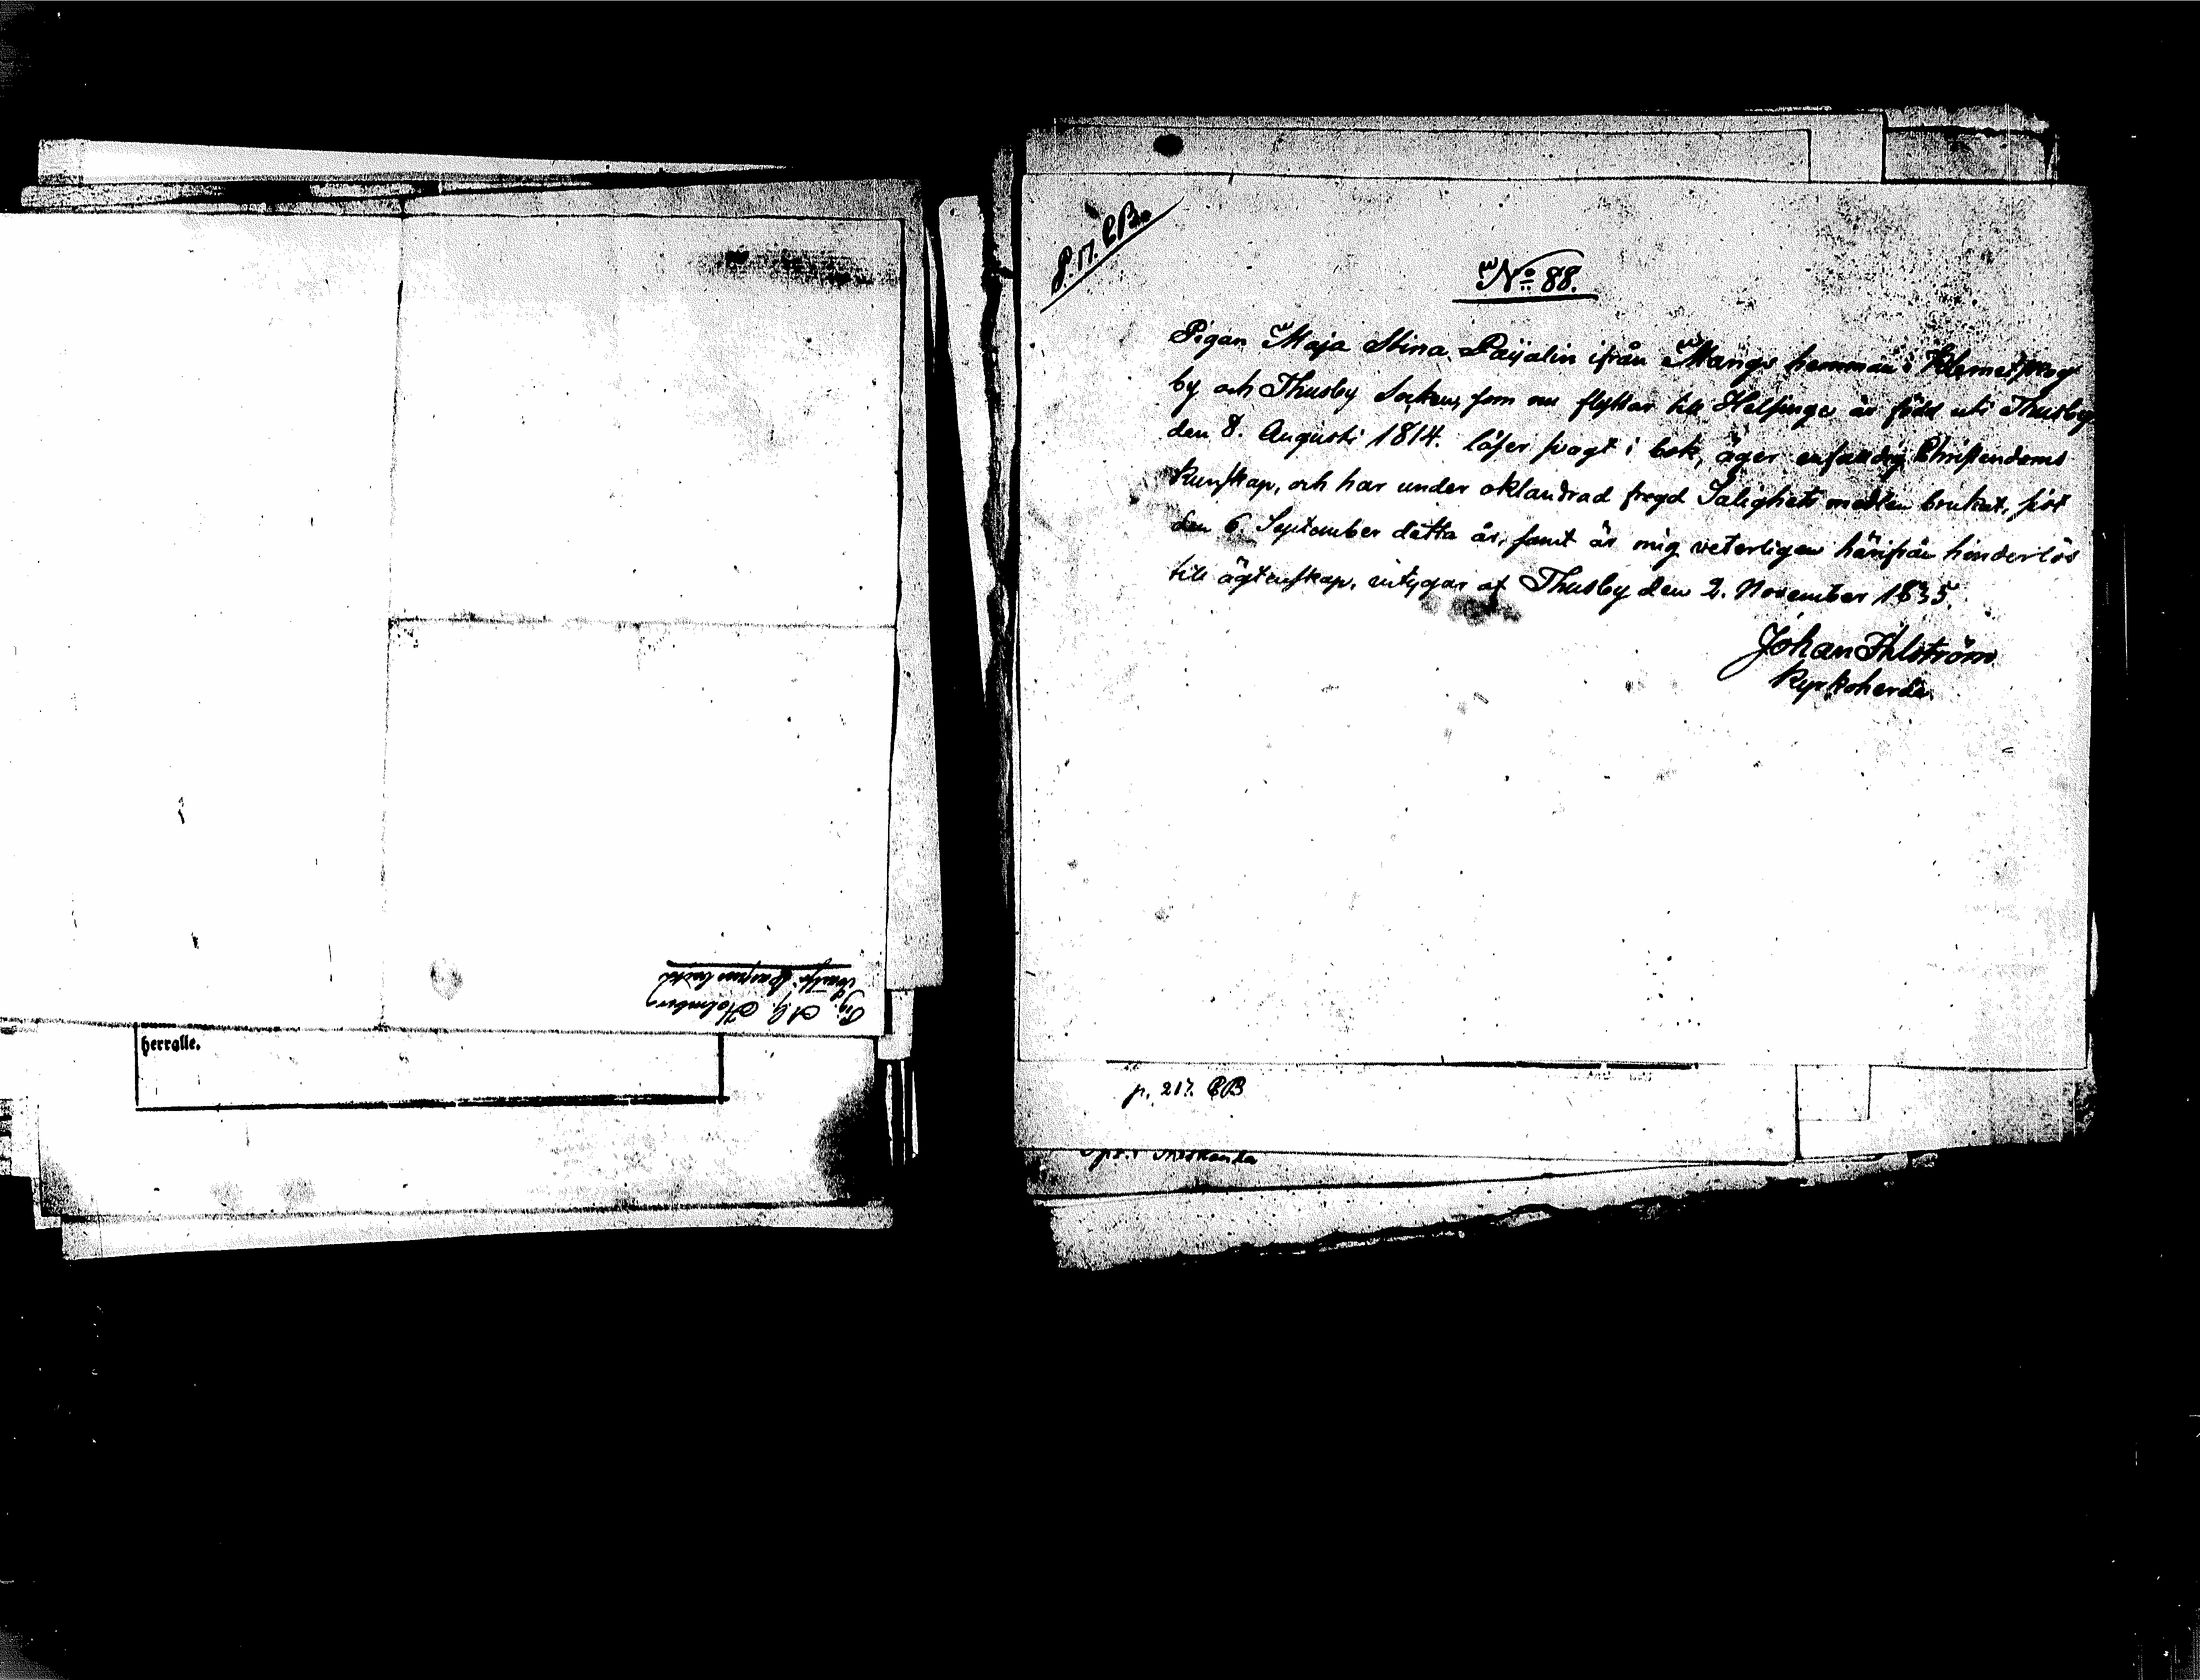 herralle.
No 88.
Pigan Maja Stina Päijalin ifrån Mångs hemman i Klemetskog
by och Thusby Socken, som nu flyttar till Helsinge är född uti Thusby
den 8. Augusti 1814. läser svagt i bok, äger enfaldig Christendoms
kunskap, och har under oklandrad fregd Salighets medlen brukat, sist
den 6. September detta år, samt är mig veterligen härifrån hinderlös
till ägtenskap, intygar af Thusby den 2. November 1835.
Johan Ahlström
Kyrkoherde.
p. 217. CB